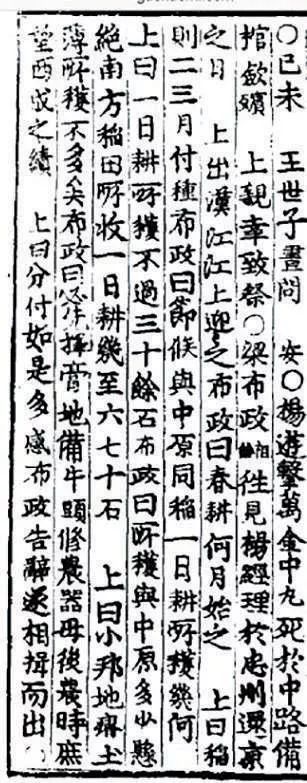 ○己未 王世子晝問 安○楊遊擊萬金中丸死於中路備
棺歛殯 上親幸致祭○梁布政 徃見楊經理於忠州還京
之日 上出漢江江上迎之布政曰春耕何月始之 上曰稻
則二三月付種布政曰節候與中原同稻一日耕所穫幾何
上曰一日耕所穫不過三十餘石布政曰所穫與中原多少懸
絶南方稻田所收一日耕幾至六七十石 上曰小邦地瘠土
薄所穫不多矣布政曰 地備牛頭修農器毋後農時庶
望西成之績 上曰分付如是多感布政告辭遂相揖而出○